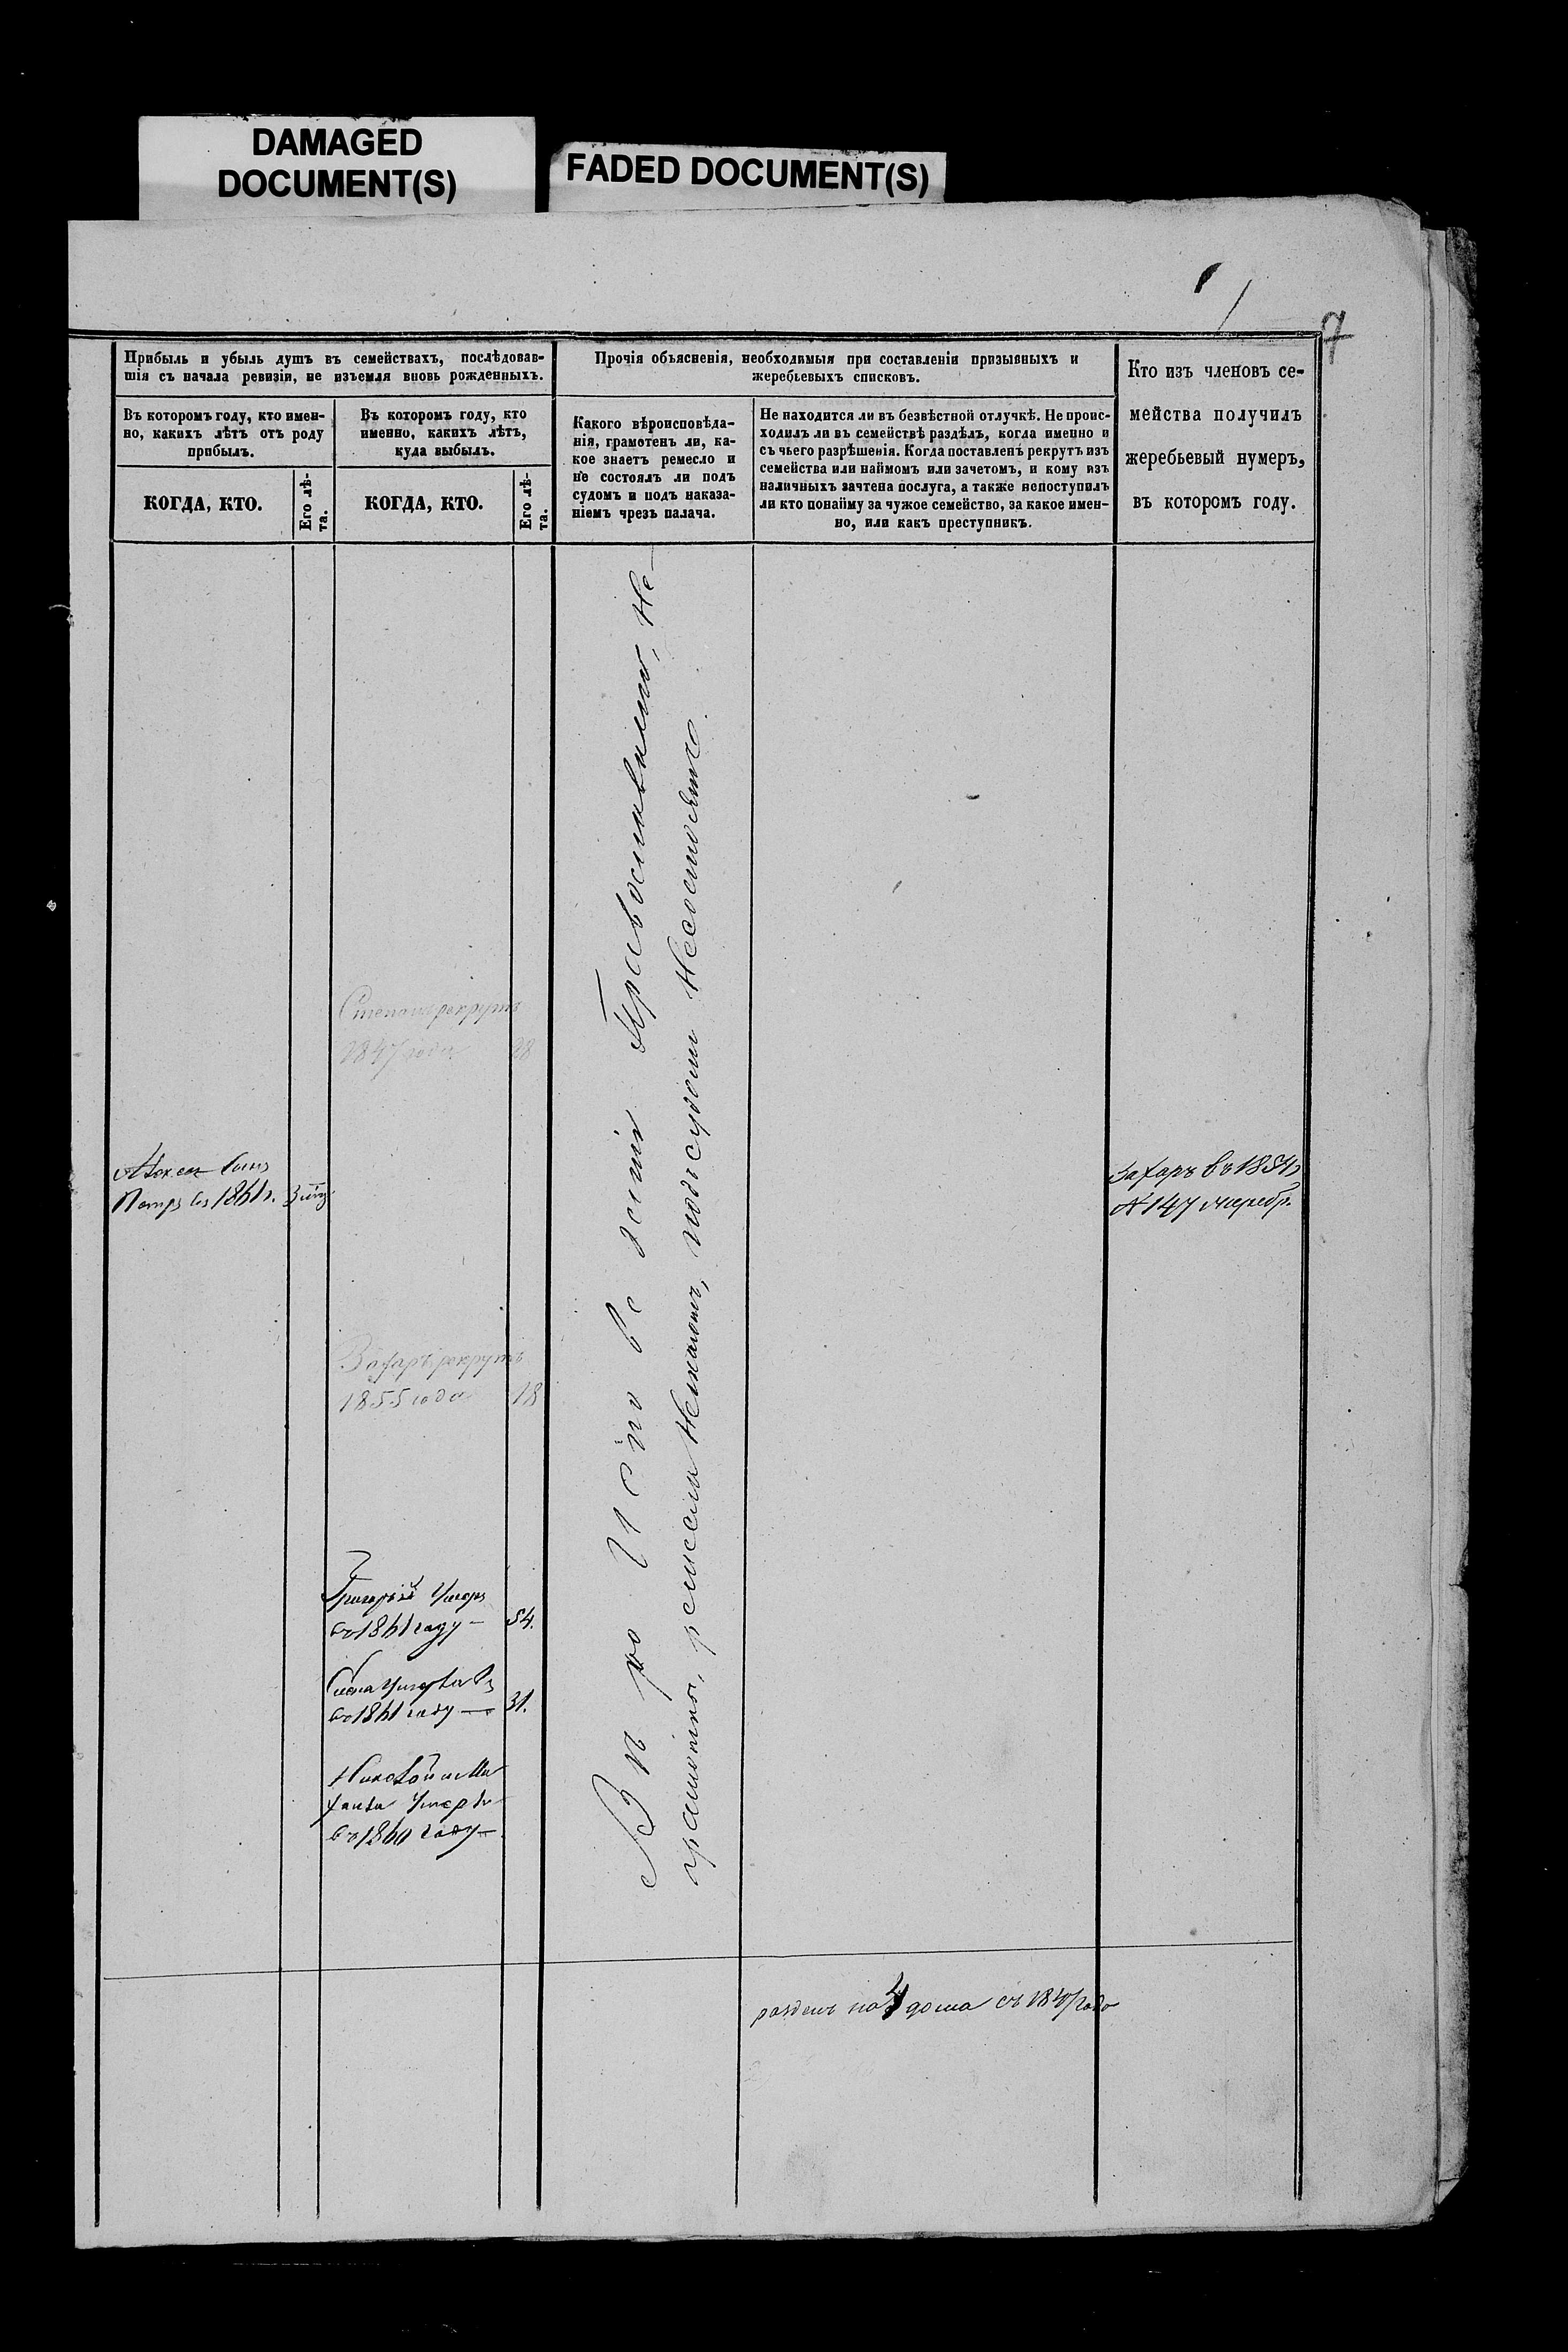 DAMAGED
DOCUMENT(S)
FADED DOCUMENT(S)
7
Прибыль и убыль душъ въ семействахъ, послѣдовав-
шія съ начала ревизіи, не изъемля вновь рожденныхъ.
Въ которомъ году, кто имен-
но, какихъ лѣтъ отъ роду
прибылъ.
КОГДА, КТО.
Его лѣ-
та.
Въ которомъ году, кто
именно, какихъ лѣтъ,
куда выбылъ.
КОГДА, КТО.
Его лѣ-
та.
Прочія объясненія, необходимыя при составленіи призывныхъ и
жеребьевыхъ списковъ.
Какого вѣроисповѣда-
нія, грамотенъ ли, ка-
кое знаетъ ремесло и
не состоялъ ли подъ
судомъ и подъ наказа-
ніемъ чрезъ палача.
Не находится ли въ безвѣстной отлучкѣ. Не проис-
ходилъ ли въ семействѣ раздѣлъ, когда именно и
съ чьего разрѣшенія. Когда поставленъ рекрутъ изъ
семейства или наймомъ или зачетомъ, и кому изъ
наличныхъ зачтена послуга, а также непоступилъ
ли кто понайму за чужое семейство, за какое имен-
но, или какъ преступникъ.
Кто изъ членовъ се-
мейства получилъ
жеребьевый нумеръ,
въ которомъ году.
рекрутъ
1847 года 28
сынъ
Петръ въ 1861 г.
Захаръ рекрутъ
1855 года 18
Григорій Умеръ
въ 1861 году — 54.
въ 1861 году — 31.
Николай и Ми
въ 1860 году —
Православнаго, не
грамотны, ремесла Незнаютъ, подъ судомъ Несостоятъ.
Захаръ въ 1854 г.
№ 147 жереб.
раздѣлъ на 4 дома съ 1847 года